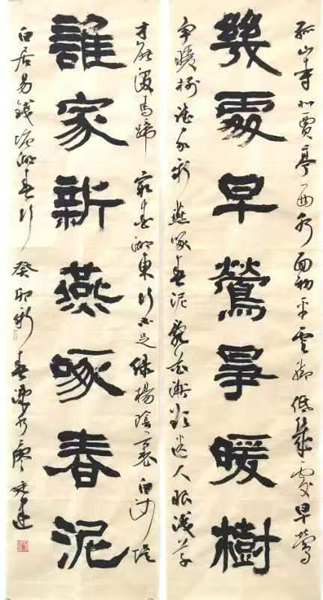 孤山寺北賈亭西水面初平雲腳低幾處早鶯
幾處早鶯爭暖樹
爭暖樹誰家新燕啄春泥亂花漸欲迷人眼淺草
才能沒馬蹄最愛湖東行不足綠楊陰裏白沙堤
誰家新燕啄春泥
白居易錢塘湖春行癸卯新春